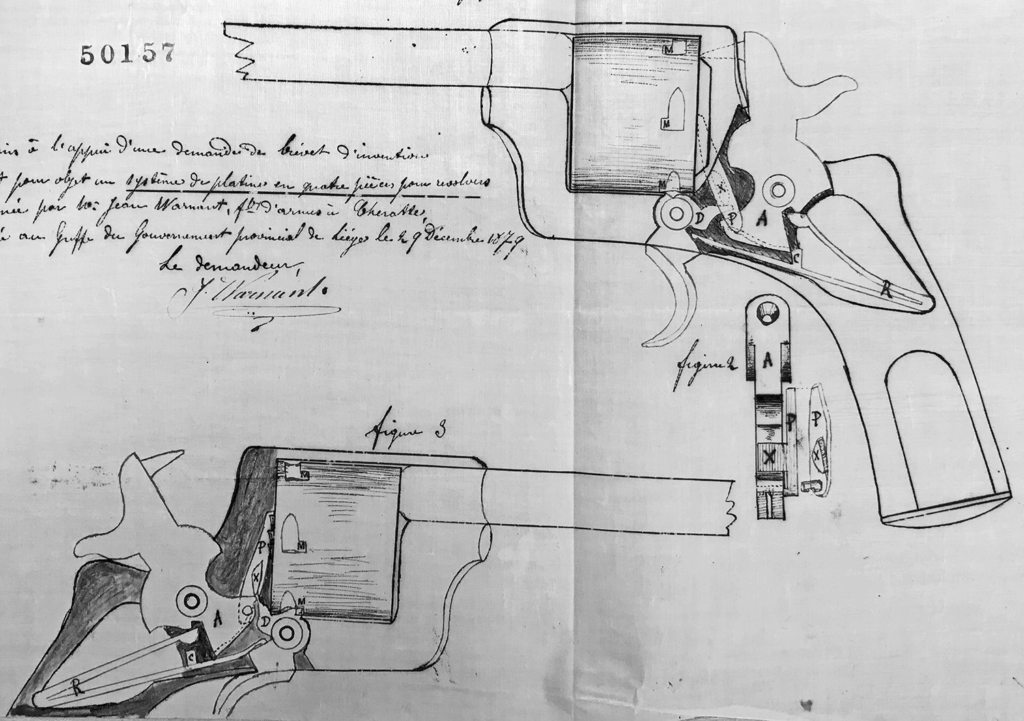 50157
à l'appui d'une demande de brevet d'invention
pour objet un système de platine en quatre pièces pour revolvers
par Mr Jean Warnant, ft d'armes à Cheratte,
au Greffe du Gouvernement provincial de Liége le 29 Décembre 1879
Le demandeur,
J. Warnant.
M
M
M
X
D
P
A
C
R
figure 2
A
P
P
X
X
figure 3
M
M
P
X
M
A
D
C
R